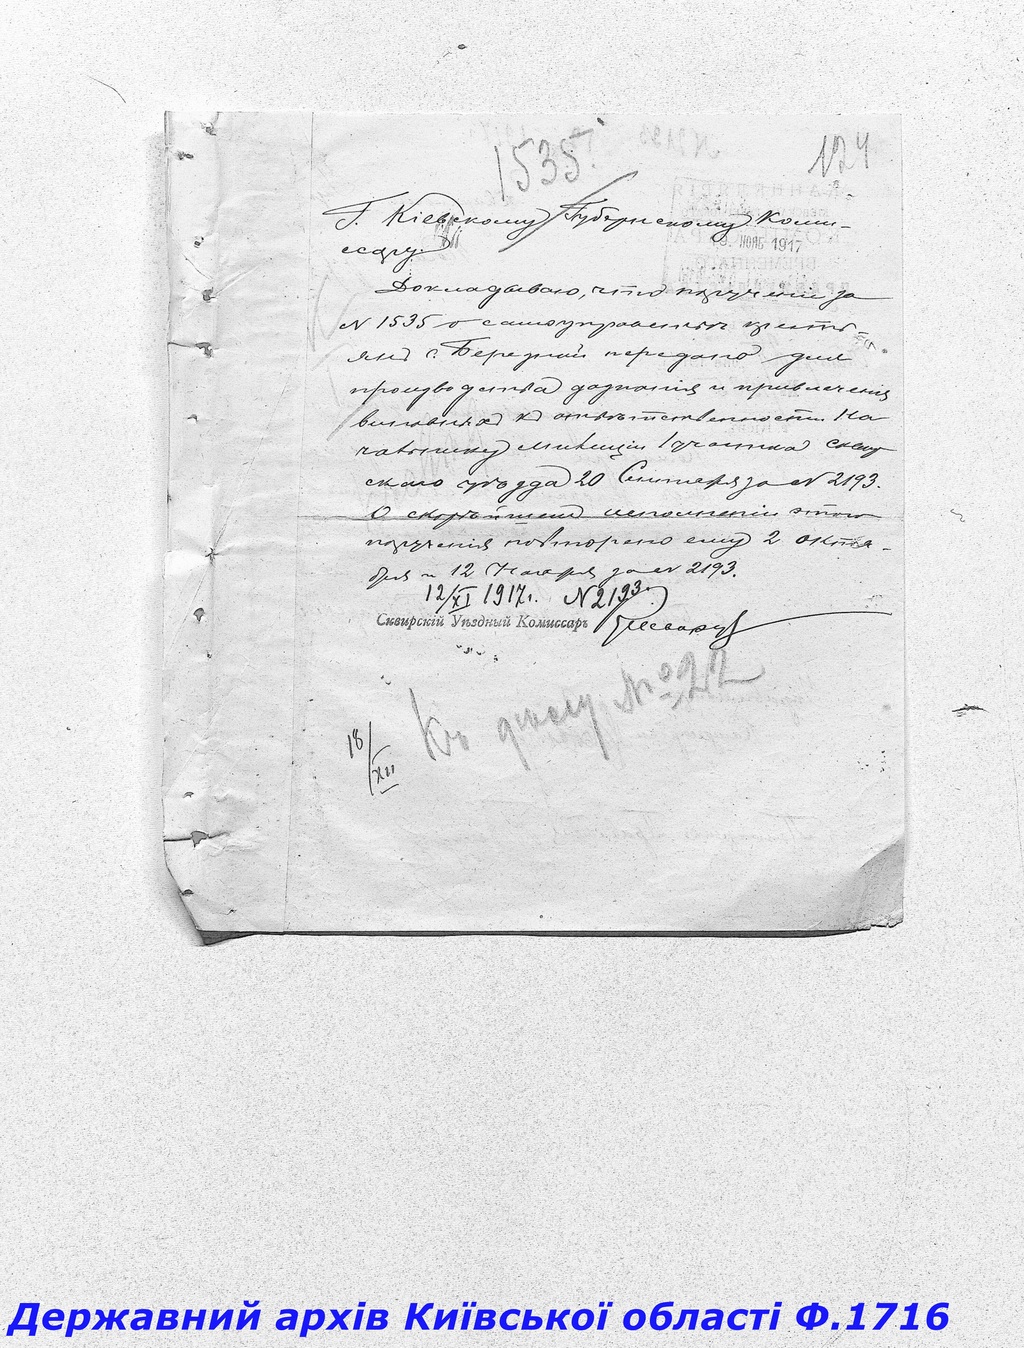 1535
124
Г. Кіевскому Губернскому Коми-
ссару.
19. НОЯБ 1917
Докладываю, что порученіе за
N 1535 о самоуправствах кресть-
ян с. Березной передано для
производства дознанія и привлечения
виновных к ответственности На
чальнику Милиціи 1 участка Сквир
ского уезда 20 Сентября за N 2193.
О скорейшем исполнении этого
поручения повторено ему 2 октя-
бря и 12 Ноября за N 2193.
12/XI 1917 г. N 2193.
Сквирскій Уѣздный Комиссаръ
Къ дѣлу № 22
18/XII
Державний архів Київської області Ф.1716